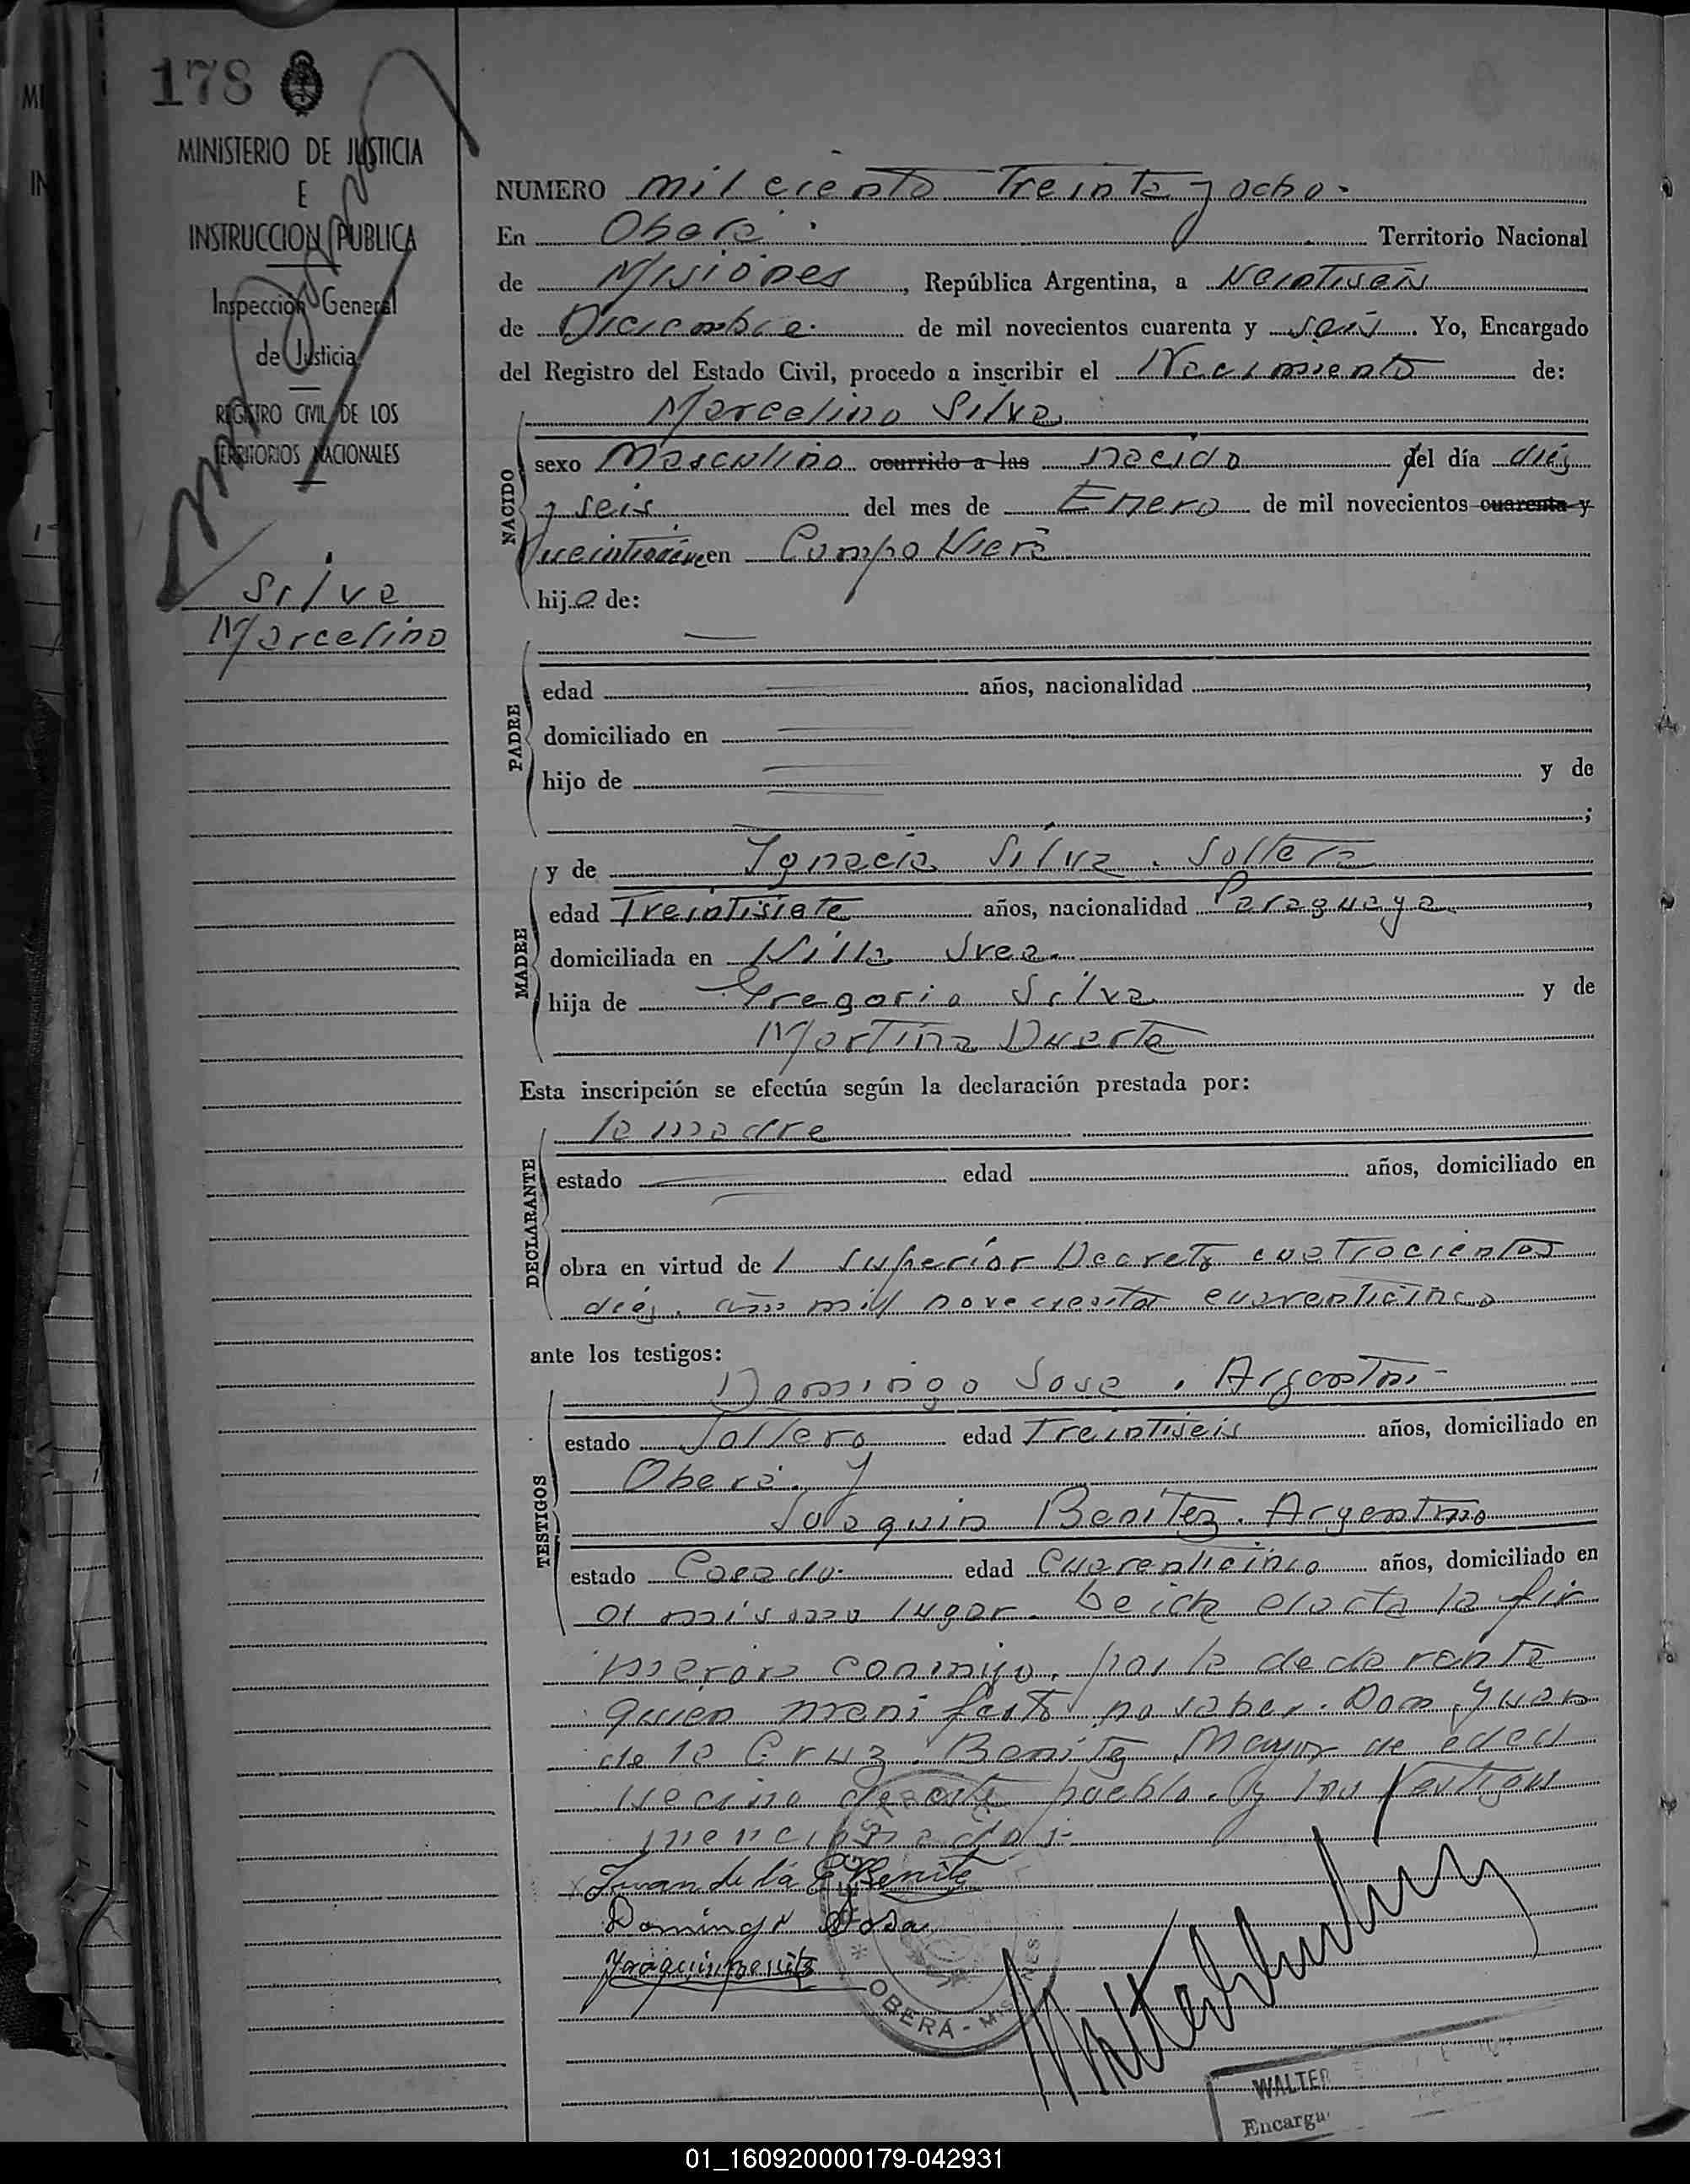 178
MINISTERIO DE JUSTICIA
E
INSTRUCCION PUBLICA
Inspección General
de Justicia
REGISTRO CIVIL DE LOS
TERRITORIOS NACIONALES
Silva
Marcelino
NUMERO mil ciento Treinta y ocho.-
En Oberá Territorio Nacional
de Misiones, República Argentina, a Veintiseis
de Diciembre. de mil novecientos cuarenta y seis. Yo, Encargado
del Registro del Estado Civil, procedo a inscribir el Nacimiento de:
Marcelino Silva
NACIDO
sexo Masculino ocurrido a las nacido del día diez
y seis del mes de Enero de mil novecientos cuarenta y
en Campo Viera
hijo de:
PADRE
edad años, nacionalidad ,
domiciliado en
hijo de y de
;
MADRE
y de Ignacia Silva. Soltera
edad Treintisiete años, nacionalidad Paraguaya,
domiciliada en Villa Svea.
hija de Gregorio Silva y de
Martina Duarte
Esta inscripción se efectúa según la declaración prestada por:
DECLARANTE
la madre
estado edad años, domiciliado en
obra en virtud del Superior Decreto cuatrocientos
diez. año mil novecientos cuarenticinco
ante los testigos:
TESTIGOS
Domingo Sosa. Argentino-
estado Soltero edad Treintiseis años, domiciliado en
Oberá. y
Joaquin Benitez. Argentino
estado Casado. edad Cuarenticinco años, domiciliado en
el mismo lugar. Leida el acta la fir
maron conmigo. por la declarante
quien manifestó no saber. Don Juan
de la Cruz Benitez Mayor de edad
vecino de este pueblo. y los testigos
mencionados:-
Juan de la C Benite
Domingo Sosa
Joaquin Benitez
OBERÁ - MISIONES
WALTER
Encarga
01_160920000179-042931